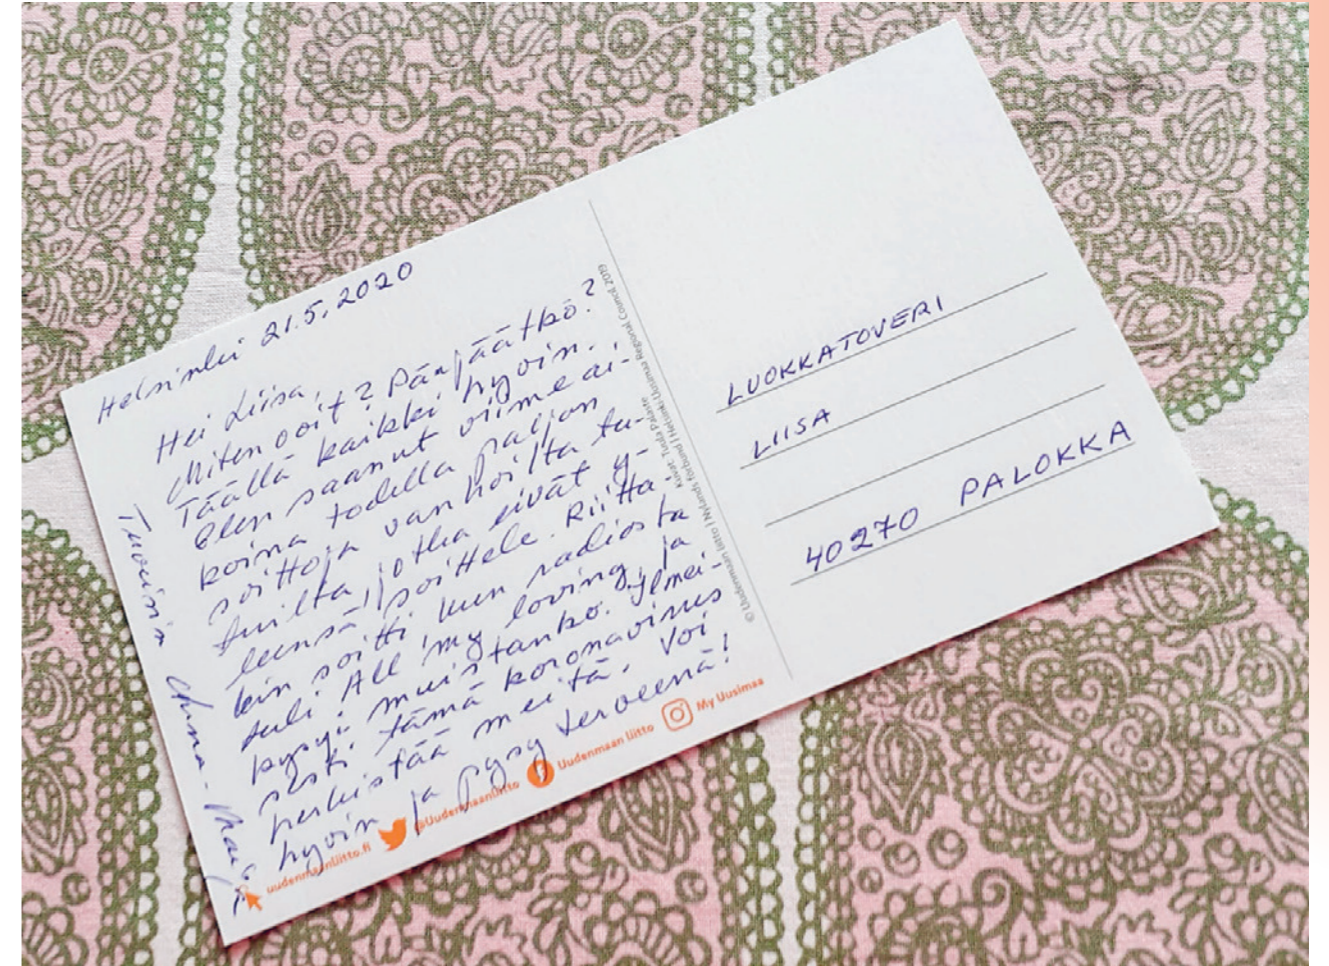 Helsinki 21.5.2020
Hei Liisa,
Miten voit? Pärjäätkö?
Täällä kaikki hyvin.
Olen saanut viime ai-
koina todella paljon
soittoja vanhoilta tu-
tuilta, jotka eivät y-
leensä soittele. Riitta-
kin soitti kun radiosta
tuli All my loving, ja
kysyi muistanko. Ilmei-
sesti tämä koronavirus
herkistää meitä. Voi
hyvin ja pysy terveenä!
Tuovisin Anna-Maija
uudenmaanliitto.fi
@Uudenmaanliitto
Uudenmaan liitto
My Uusimaa
© Uudenmaan liitto | Nylands förbund | Helsinki-Uusimaa Regional Council 2019
Kuvat: Tuula Palaste
LUOKKATOVERI
LIISA
40270 PALOKKA